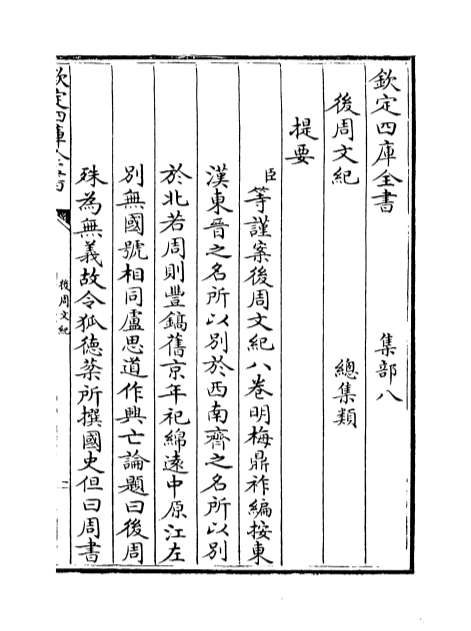 欽定四庫全書　　集部八
後周文紀　　總集類
提要
臣等謹案後周文紀八卷明梅鼎祚編按東
漢東晉之名所以別於西南齊之名所以別
於北若周則豐鎬舊京年祀綿遠中原江左
別無國號相同盧思道作興亡論題曰後周
殊為無義故令狐德棻所撰國史但曰周書
欽定四庫全書
後周文紀